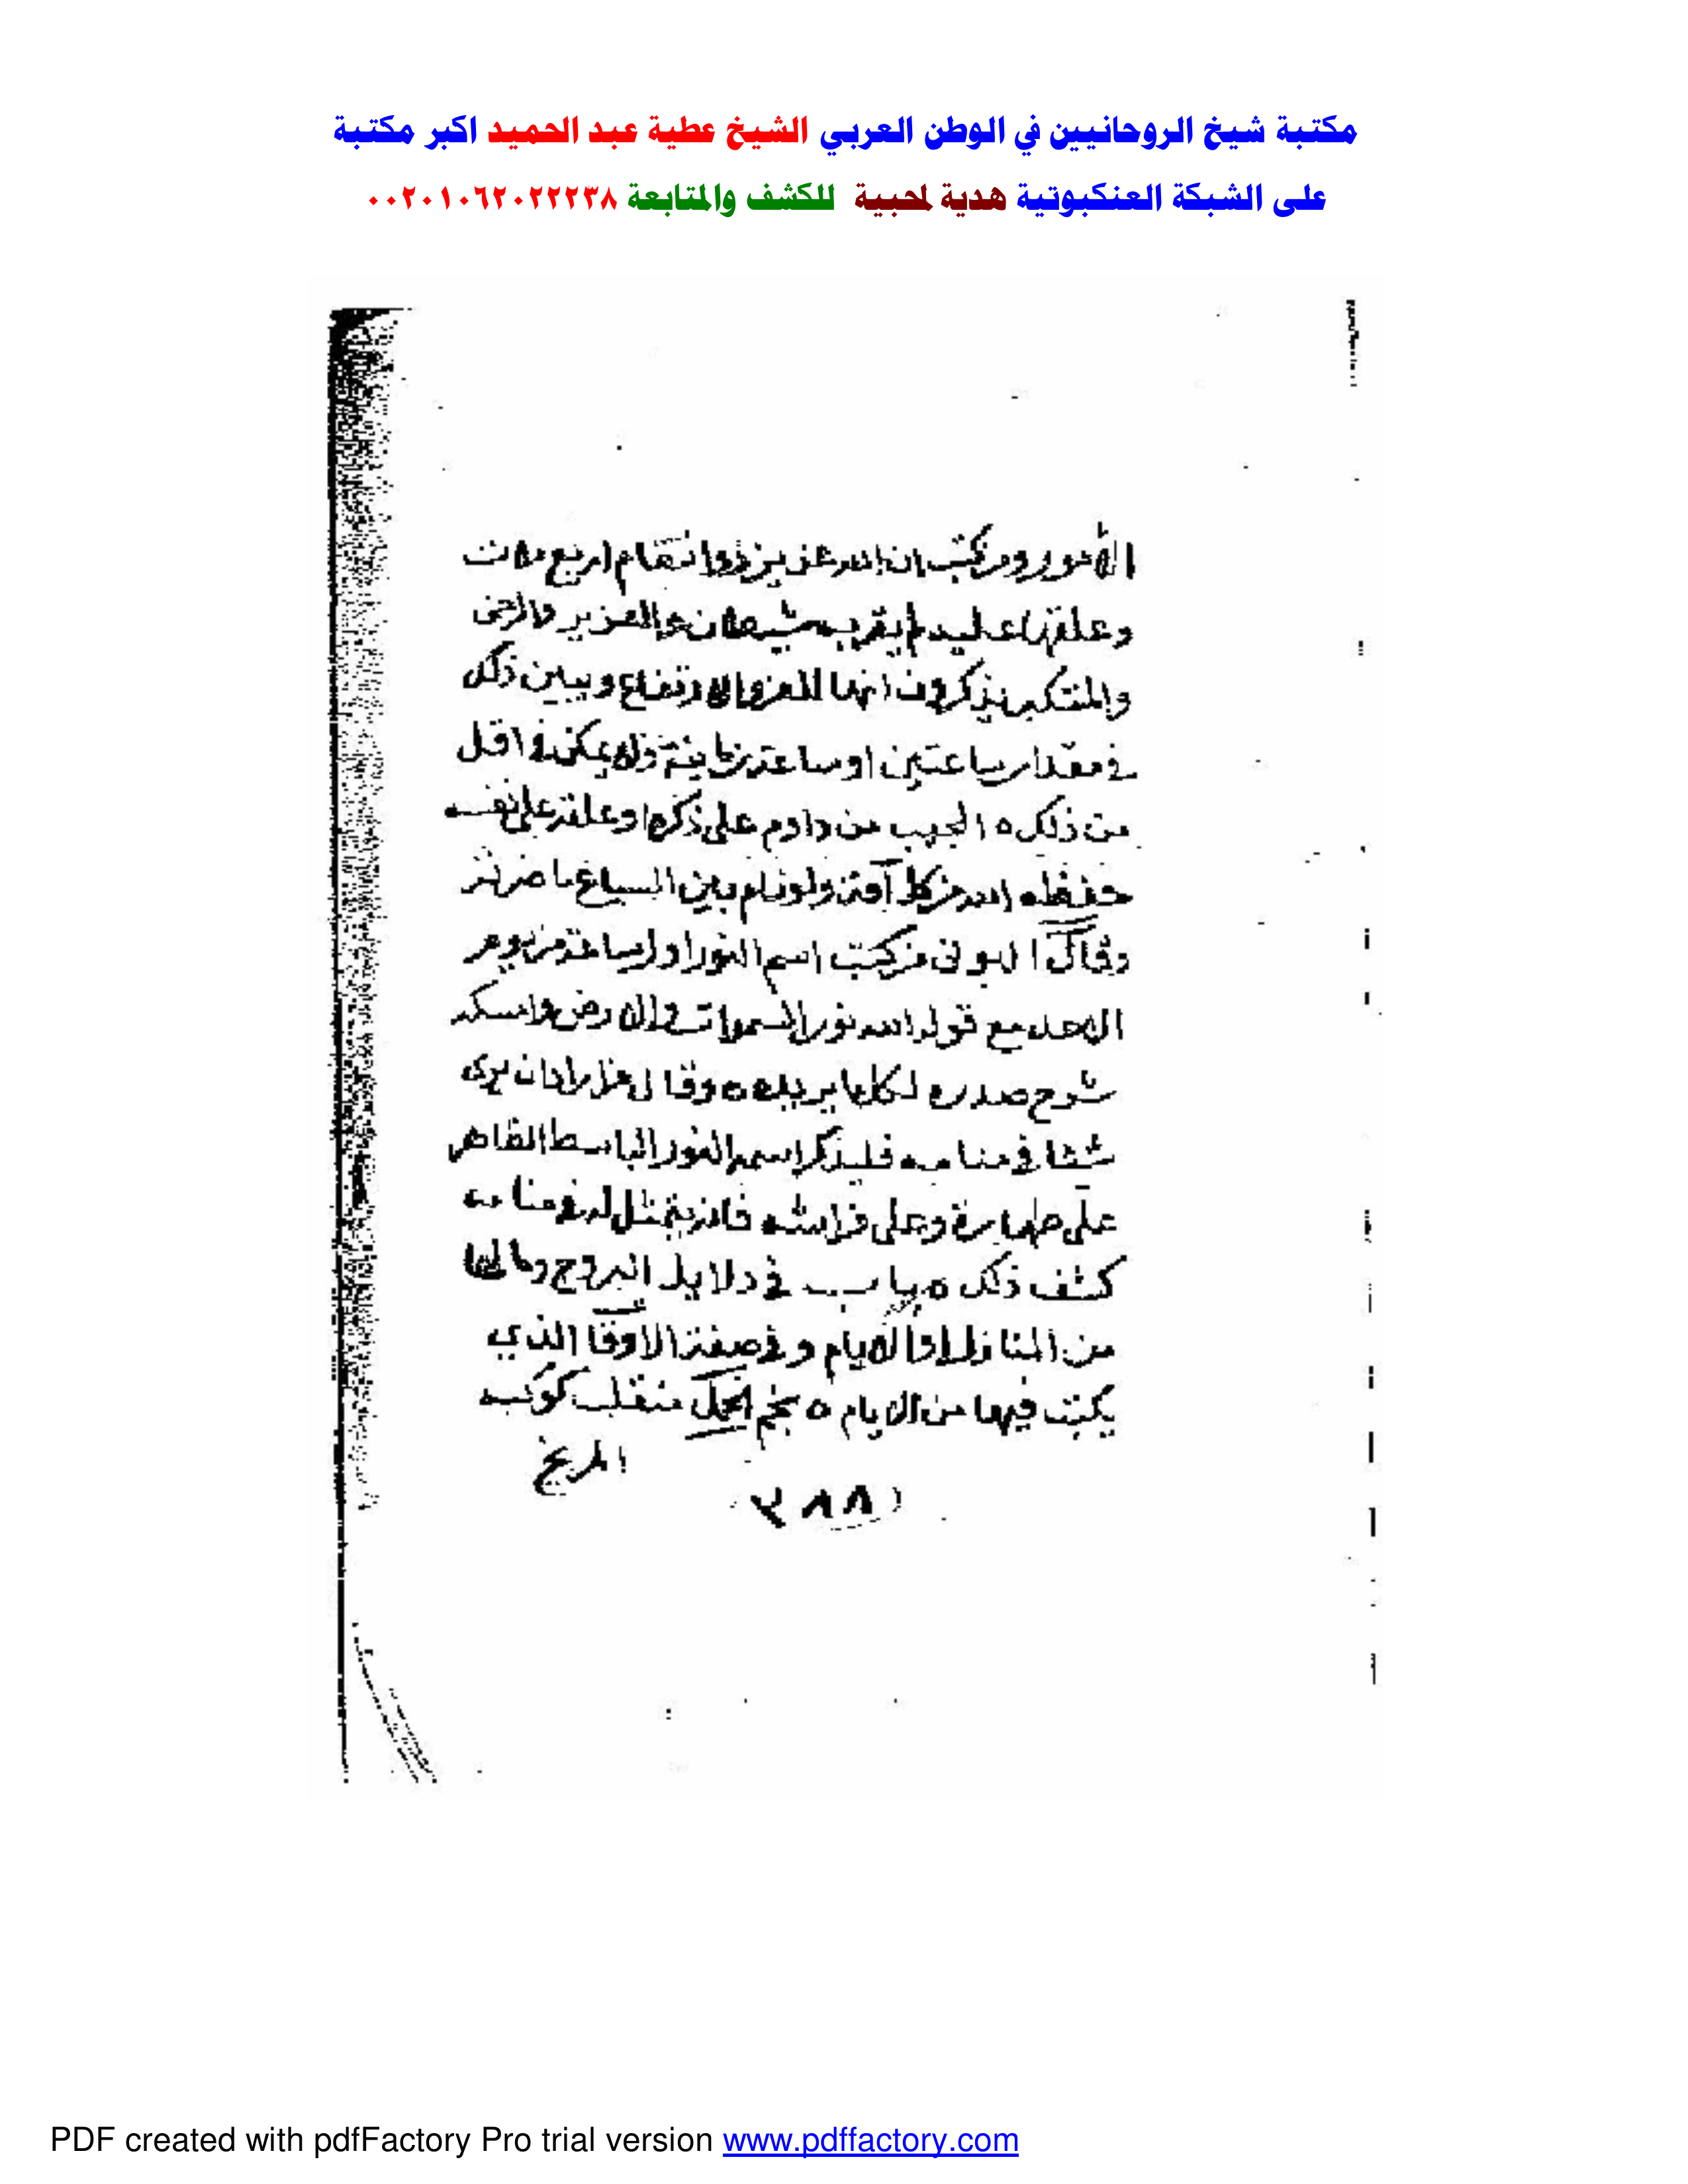 مكتبة شيخ الروحانيين في الوطن العربي الشيخ عطية عبد الحميد اكبر مكتبة
على الشبكة العنكبوتية هدية لمحبية للكشف والمتابعة ٠٠٢٠١٠٦٢٠٢٢٢٣٨
الأمور ومن كتب ان الله عزيز ذوا نتقام اربع مرات
وعلقها عليه لم يقربه شيطان والعزيز
والمتكبر يذكرون انها للعز والارتفاع ويبين ذلك
في مقدار ساعتين او ساعة ولا يمكن في اقل
من ذلك ه المجيب من داوم على ذكره وعلقه على نفسه
حفظه الله من كل آفة ولو نام بين السباع ما ضرته
وقال البوني من كتب اسم النور اول ساعة من يوم
الاحد مع قوله الله نور السموات والارض وامسكه
شرح صدره لكلما يريده ه وقال من اراد ان يرى
شيئا في منامه فليذكر اسمه النور الباسط القاهر
على طهارة وعلى فراشه فانه يتمثل له في منامه
كشف ذلك ه باب في دلايل البروج وما لها
من المنازل والايام وفي صفة الاوقا الذي
يكتب فيها من الايام ه نجم الحمل منقلب كوكبه
المريخ
٢٨٨
PDF created with pdfFactory Pro trial version www.pdffactory.com